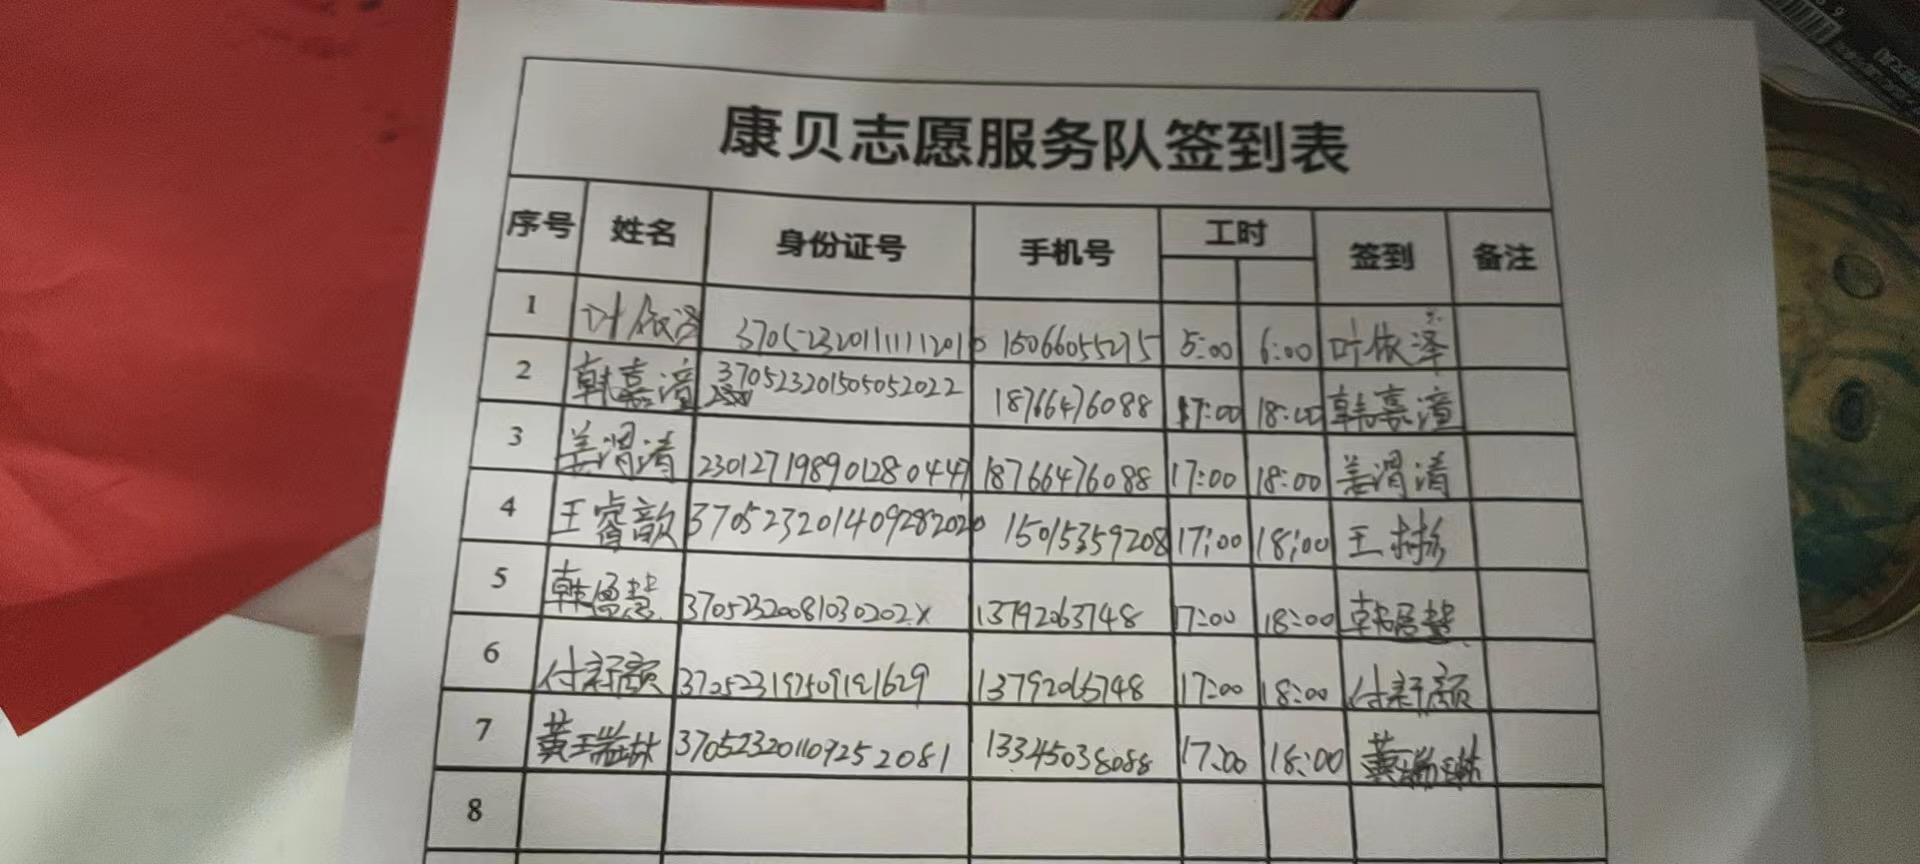 康贝志愿服务队签到表
序号 姓名 身份证号 手机号 工时 签到 备注
1 叶依泽 15066055215 5:00 6:00 叶依泽
2 韩嘉潼 370523201505052022 18766476088 17:00 18:00 韩嘉潼
3 姜渭清 230127198901280447 18766476088 17:00 18:00 姜渭清
4 王睿歆 370523201409282020 15015359208 17:00 18:00 王
5 韩 37052320081030202X 13792063748 17:00 18:00 韩
6 付 13792063748 17:00 18:00 付
7 黄瑞琳 370523201109252081 13345038088 17:00 18:00 黄瑞琳
8